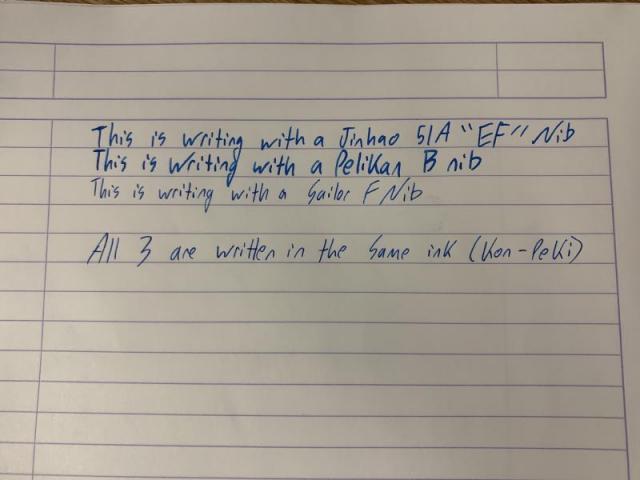 This is writing with a Jinhao 51A "EF" Nib
This is writing with a Pelikan B nib
This is writing with a Sailor F Nib
All 3 are written in the same ink (Kon-Peki)